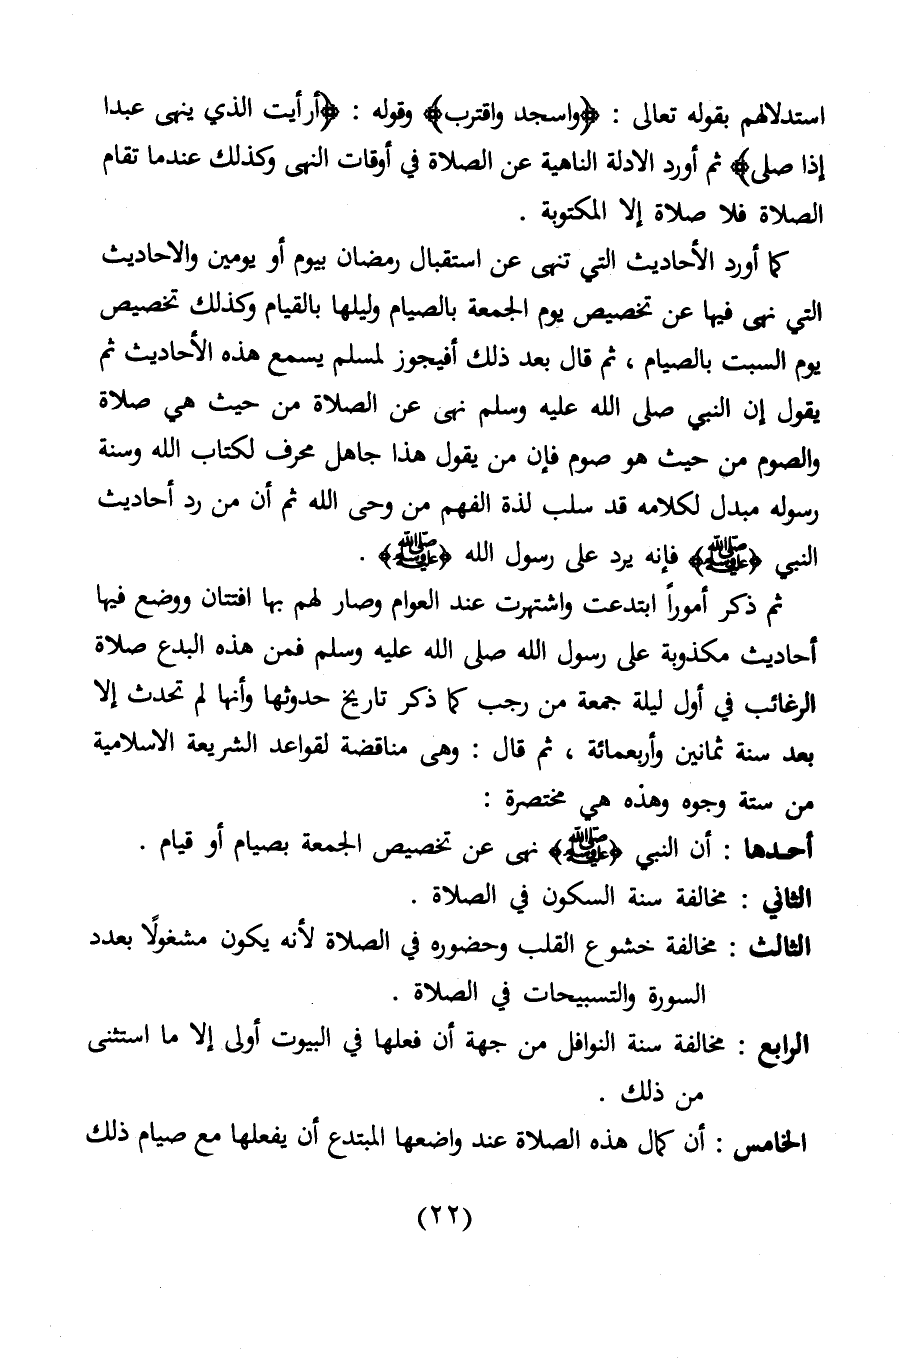 استدلالهم بقوله تعالى : ﴿واسجد واقترب﴾ وقوله : ﴿أرأيت الذي ينهى عبدا
إذا صلى﴾ ثم أورد الادلة الناهية عن الصلاة في أوقات النهى وكذلك عندما تقام
الصلاة فلا صلاة إلا المكتوبة .
كما أورد الأحاديث التي تنهى عن استقبال رمضان بيوم أو يومين والاحاديث
التي نهى فيها عن تخصيص يوم الجمعة بالصيام وليلها بالقيام وكذلك تخصيص
يوم السبت بالصيام ، ثم قال بعد ذلك أفيجوز لمسلم يسمع هذه الأحاديث ثم
يقول إن النبي صلى الله عليه وسلم نهى عن الصلاة من حيث هي صلاة
والصوم من حيث هو صوم فإن من يقول هذا جاهل محرف لكتاب الله وسنة
رسوله مبدل لكلامه قد سلب لذة الفهم من وحى الله ثم أن من رد أحاديث
النبي ﴿ﷺ﴾ فإنه يرد على رسول الله ﴿ﷺ﴾ .
ثم ذكر أموراً ابتدعت واشتهرت عند العوام وصار لهم بها افتتان ووضع فيها
أحاديث مكذوبة على رسول الله صلى الله عليه وسلم فمن هذه البدع صلاة
الرغائب في أول ليلة جمعة من رجب كما ذكر تاريخ حدوثها وأنها لم تحدث إلا
بعد سنة ثمانين وأربعمائة ، ثم قال : وهى مناقضة لقواعد الشريعة الاسلامية
من ستة وجوه وهذه هي مختصرة :
أحدها : أن النبي ﴿ﷺ﴾ نهى عن تخصيص الجمعة بصيام أو قيام .
الثاني : مخالفة سنة السكون في الصلاة .
الثالث : مخالفة خشوع القلب وحضوره في الصلاة لأنه يكون مشغولًا بعدد
السورة والتسبيحات في الصلاة .
الرابع : مخالفة سنة النوافل من جهة أن فعلها في البيوت أولى إلا ما استثنى
من ذلك .
الخامس : أن كمال هذه الصلاة عند واضعها المبتدع أن يفعلها مع صيام ذلك
(٢٢)